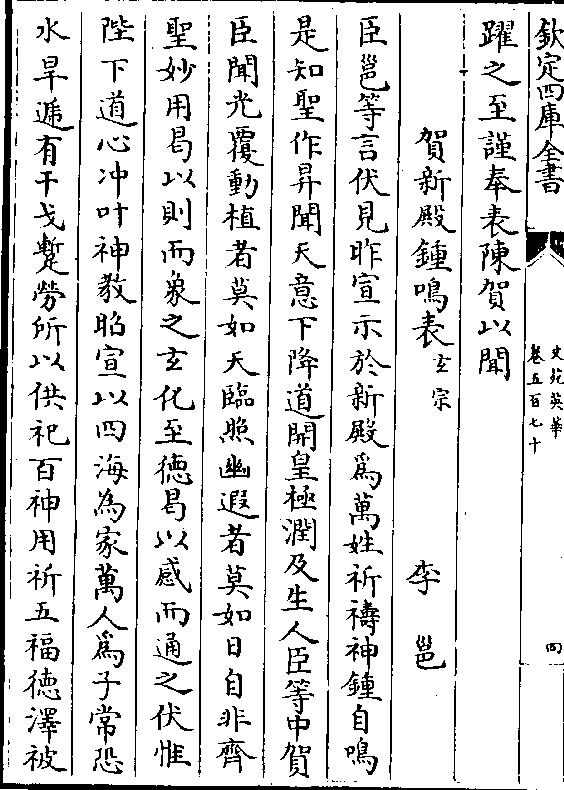 欽定四庫全書
文苑英華
卷五百七十
四
躍之至謹奉表陳賀以聞
賀新殿鍾鳴表玄宗 李邕
臣邕等言伏見昨宣示於新殿爲萬姓祈禱神鍾自鳴
是知聖作昇聞天意下降道開皇極潤及生人臣等中賀
臣聞光覆動植者莫如天臨照幽遐者莫如日自非齊
聖妙用曷以則而象之玄化至德曷以感而通之伏惟
陛下道心冲叶神教昭宣以四海為家萬人爲子常恐
水旱遞有干戈蹔勞所以供祀百神用祈五福德澤被